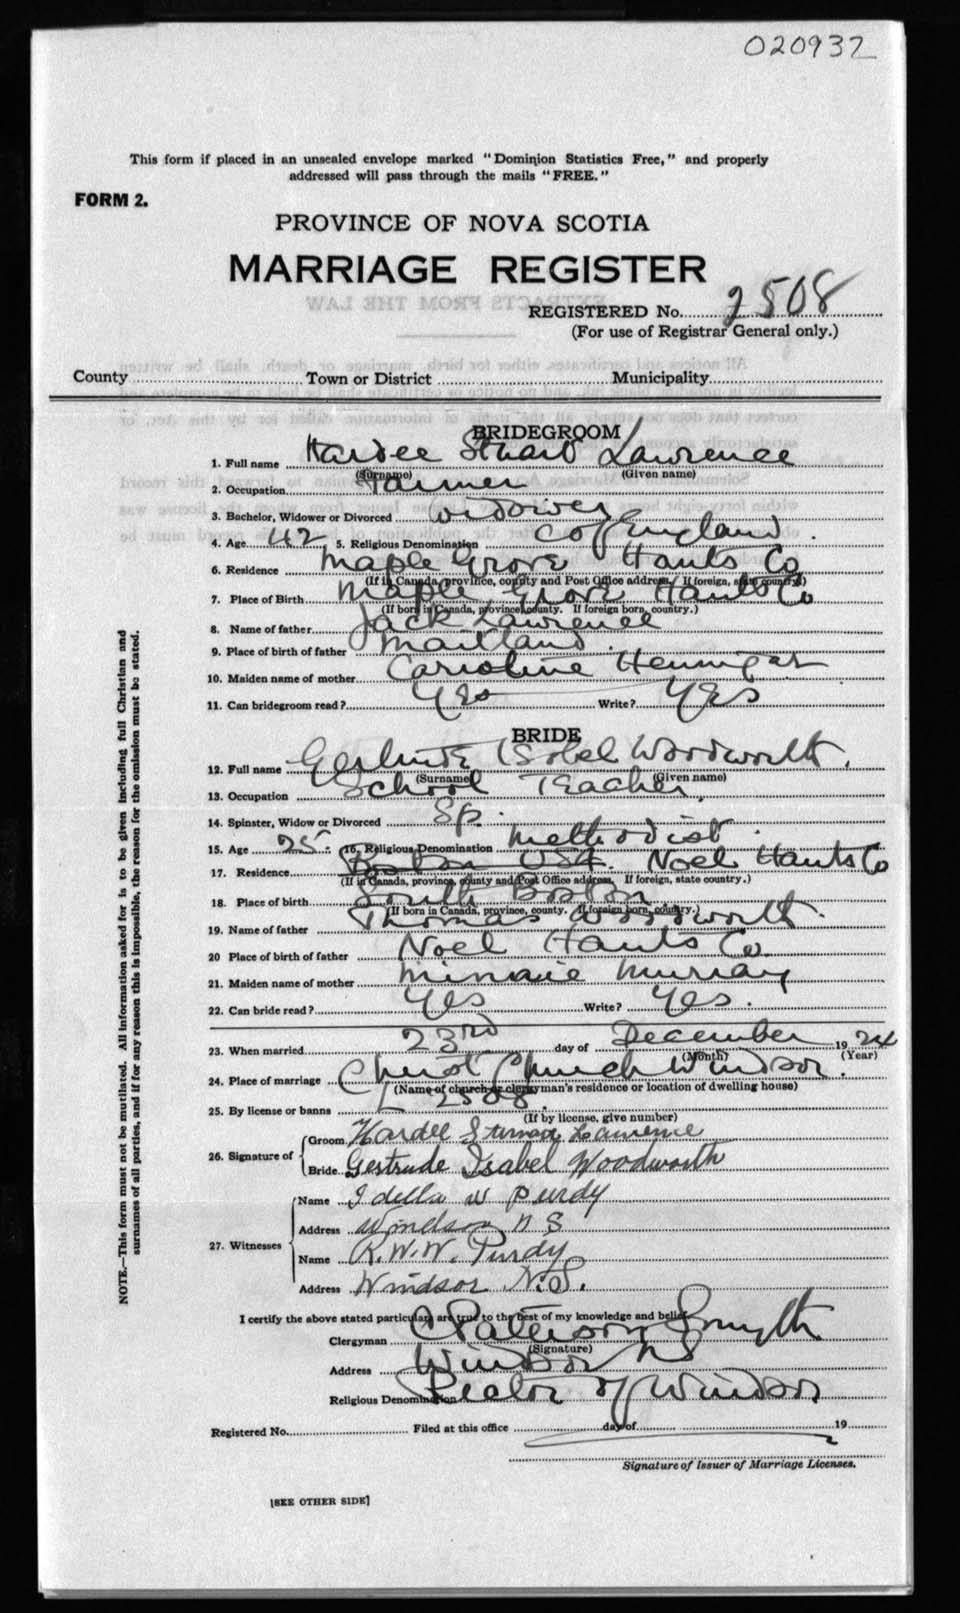 020937
This form if placed in an unsealed envelope marked "Dominion Statistics Free," and properly
addressed will pass through the mails "FREE."
FORM 2.
PROVINCE OF NOVA SCOTIA
MARRIAGE REGISTER
REGISTERED No. 2508
(For use of Registrar General only.)
County Town or District Municipality
BRIDEGROOM
1. Full name Hardee Stuard Lawrence
(Surname) (Given name)
2. Occupation Farmer
3. Bachelor, Widower or Divorced widower
4. Age 42 5. Religious Denomination C of England.
6. Residence Maple Grove Hants Co
(If in Canada, province, county and Post Office address. If foreign, state country.)
7. Place of Birth Maple Grove Hants Co
(If born in Canada, province, county. If foreign born, country.)
8. Name of father Jack Lawrence
9. Place of birth of father Maitland.
10. Maiden name of mother Caroline Hennigar
11. Can bridegroom read? Yes Write? Yes
BRIDE
12. Full name Gertrude Isobel Woodworth.
(Surname) (Given name)
13. Occupation School Teacher.
14. Spinster, Widow or Divorced Sp.
15. Age 25. 16. Religious Denomination Methodist.
17. Residence Boston USA. Noel Hants Co
(If in Canada, province, county and Post Office address. If foreign, state country.)
18. Place of birth South Boston
(If born in Canada, province, county. If foreign born, country.)
19. Name of father Thomas Woodworth.
20 Place of birth of father Noel Hants Co.
21. Maiden name of mother Minnie Murray
22. Can bride read? Yes Write? Yes.
23. When married 23rd day of December 1924
(Month) (Year)
24. Place of marriage Christ Church Windsor.
(Name of church or clergyman's residence or location of dwelling house)
25. By license or banns L 2508.
(If by license, give number)
26. Signature of Groom Hardee Lawrence
Bride Gertrude Isabel Woodworth
27. Witnesses Name Idella W Purdy
Address Windsor N S
Name R.W.W. Purdy
Address Windsor N.S.
I certify the above stated particulars are true to the best of my knowledge and belief.
Clergyman C Paterson Smyth
(Signature)
Address Windsor NS
Religious Denomination Rector of Windsor
Registered No. Filed at this office day of 19
Signature of Issuer of Marriage Licenses.
[SEE OTHER SIDE]
NOTE.—This form must not be mutilated. All information asked for is to be given including full Christian and
surnames of all parties, and if for any reason this is impossible, the reason for the omission must be stated.